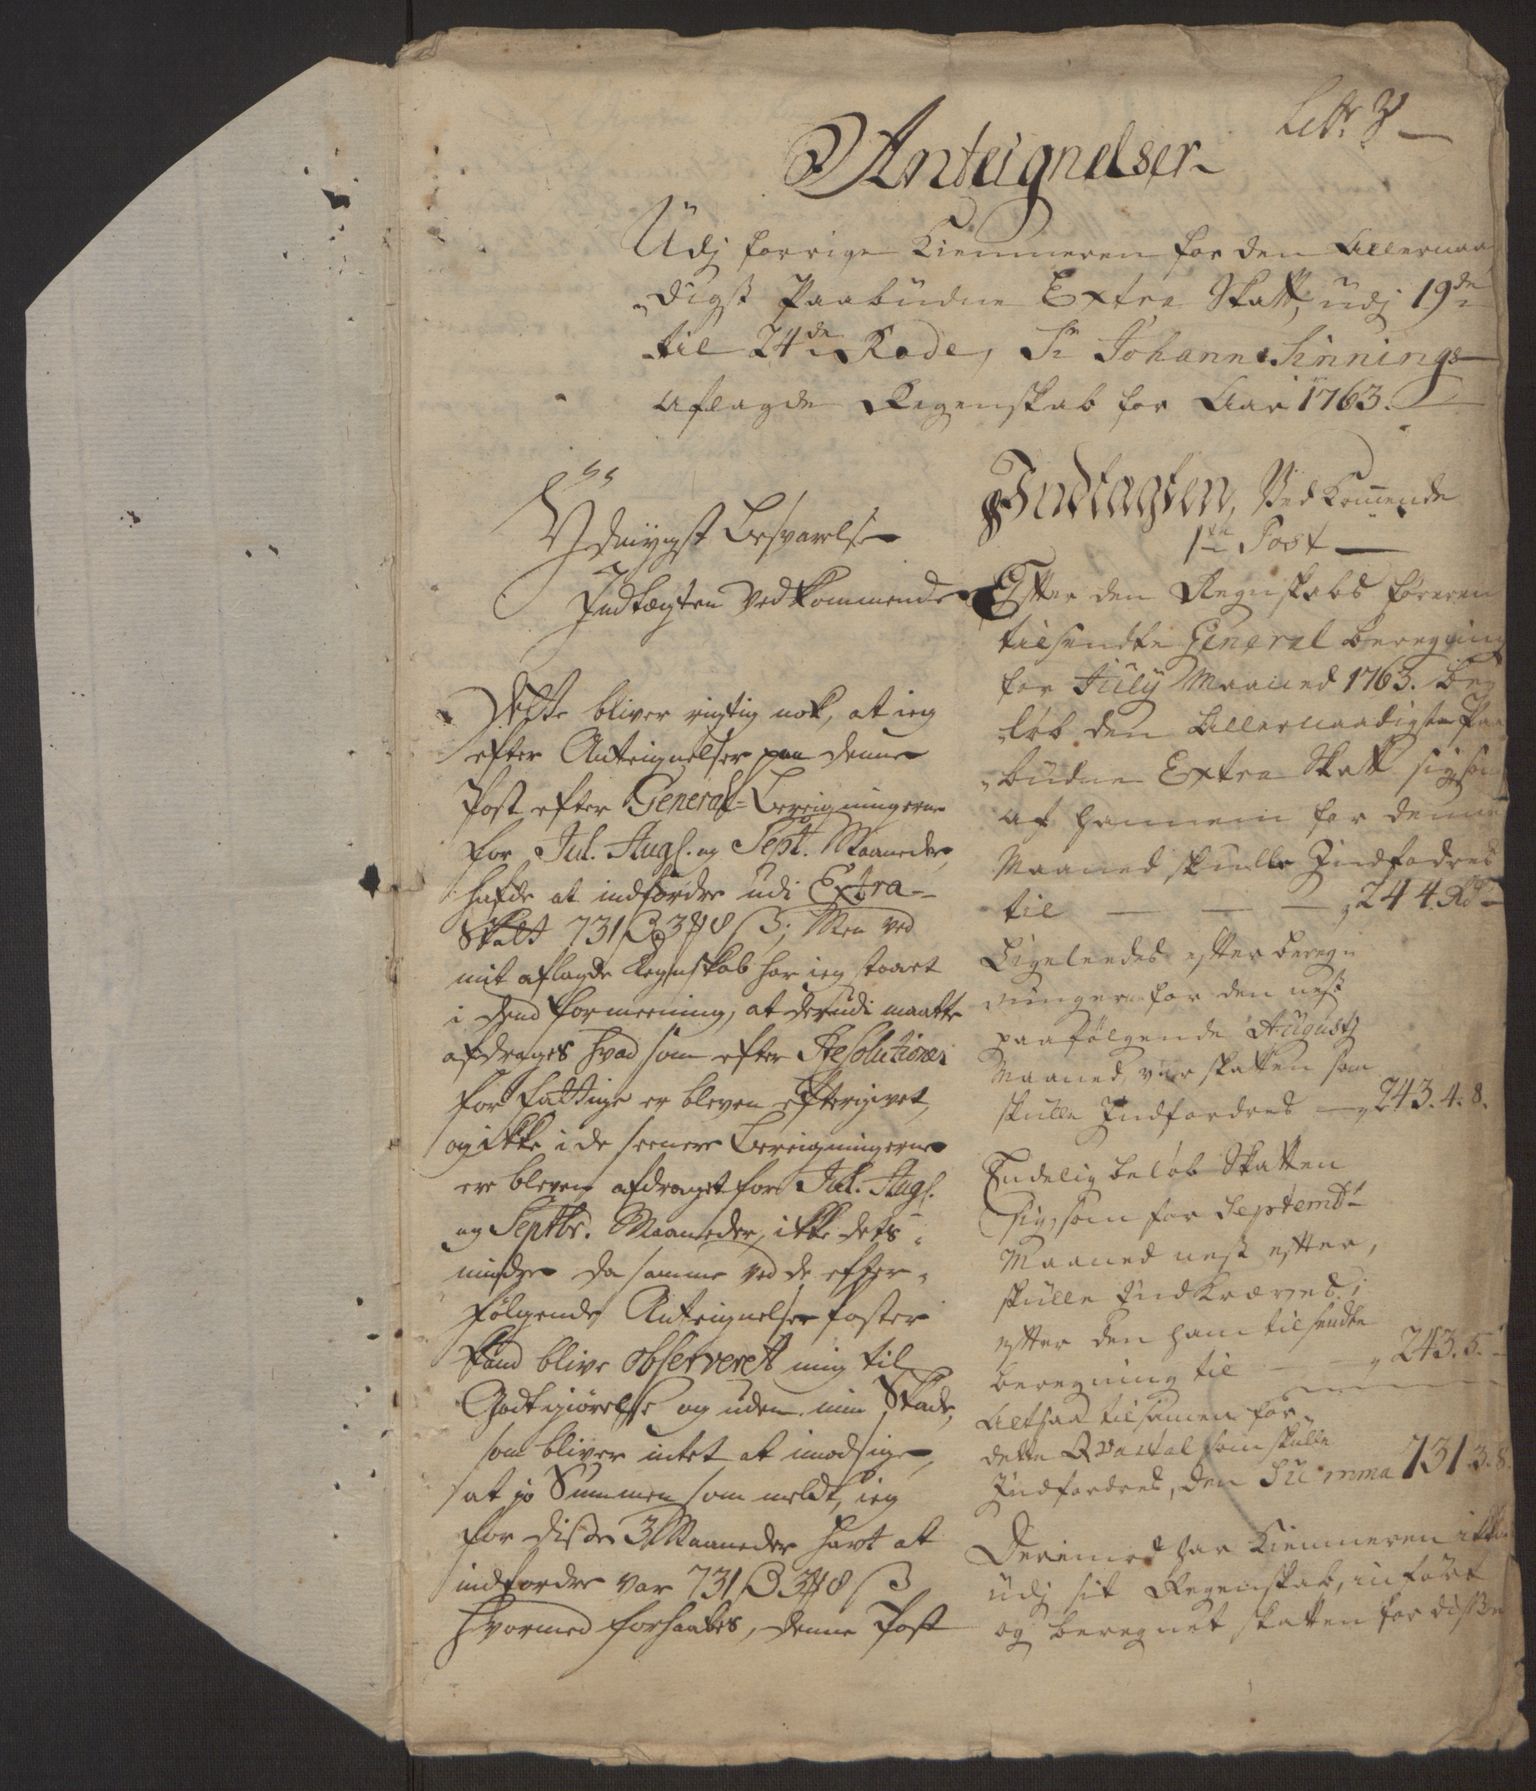 Litr. B
Anteignelser
Udj forrige Kiemneren for den Allernaa-
digst Paabudne Extra Skatt, udj 19de
til 24de Rode, Sr Johannes Finnings
aflagde Regenskab for Aar 1763.
Ydmygst Besvarelse
Indtægten Vedkommende
Dette bliver rigtig nok, at ieg
efter Anteignelser paa denne
Post efter General-Bereigningerne
for Jul. Augs. og Sept. Maaneder,
hafde at indfordre udi Extra-
Skatt 731 Rd 3 # 8 s; Men ved
mit aflagde Regnskab har ieg staaet
i dend formeening, at derudi maatte
afdrages hvad som efter Resolutioner
for fattige er bleven eftergivet,
og ikke i de seenere Bereigningerne
ere bleven afdraget for Jul. Augs.
og Septbr. Maaneder, ikke dets-
mindre da samme ved de efter-
følgende Anteignelser Poster
kand blive observeret mig til
Godtgiørelse og uden min Skade,
som bliver intet at imodsige,
at jo Summen som meldt, ieg
for disse 3 Maaneder havt at
indfordre var 731 Rd 3 # 8 s
hvormed forhaabes, denne Post
Indtagten, Vedkommende
1te Post
Efter den Regnskabs føreren
tilsendte General beregning
for July Maaned 1763. be-
løb den Allernaadigste Paa-
budne Extra Skatt sig, som
af hannem for denne
Maaned skulle Indfodres
til - - - 244. Rd
Ligeleedes efter bereg-
ningerne for den nest
paafølgende Augusty
Maaned, var skatten som
skulle Indfordres - 243. 4. 8.
Endelig beløb Skatten
sig, som for Septembr
Maaned nest efter,
skulle Indkræves;
efter den ham tilsendte
beregning til - - 243. 5.
Altsaa tilsamen for
dette Qvartal som skulle
Indfordres, den Summa 731. 3. 8.
Derimod har Kiemneren ikke
udj sit Regenskab, inført
og beregnet skatten for disse